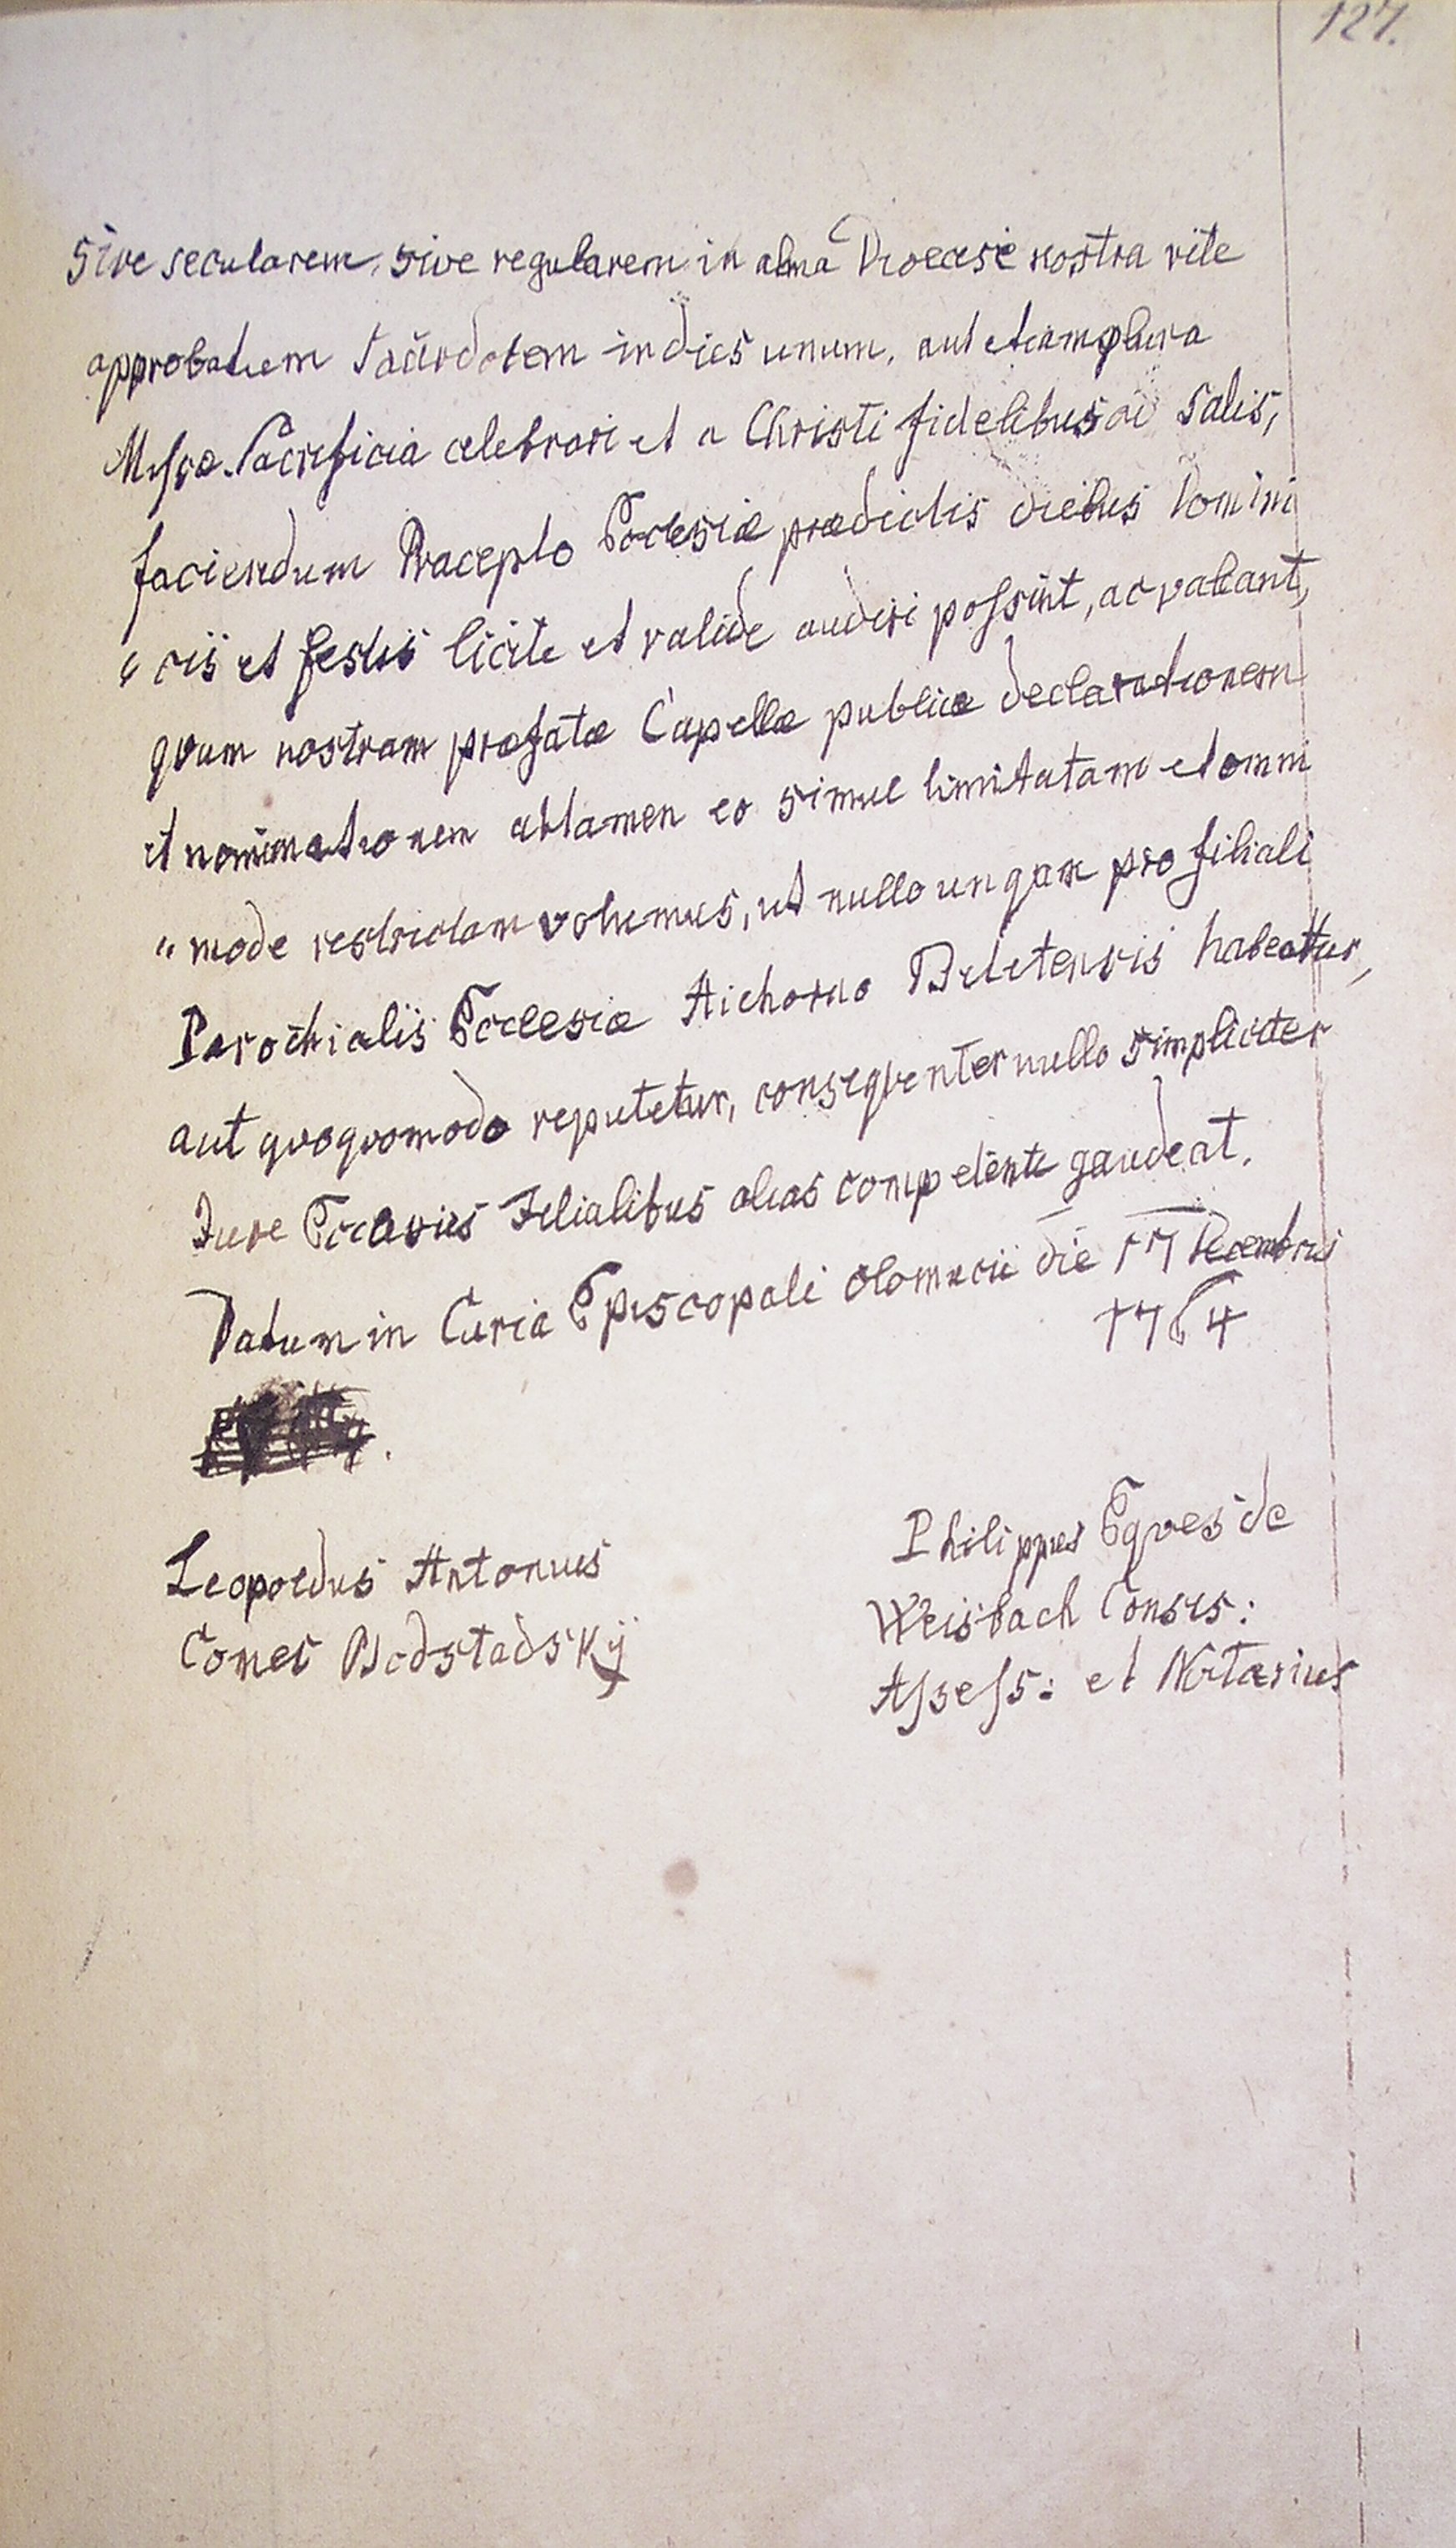 127.
Sive secularem, sive regularem in alma Dioecesi nostra rite
approbatum Sacerdotem in dies unum, aut etiam plura
Missæ Sacrificia celebrari et a Christi fidelibus ad Satis,
faciendum Præcepto Ecclesiæ prædictis diebus Domini
„ cis et festis licite et valide audiri possint, ac valeant,
qvam nostram præfatæ Capellæ publicæ declarationem
et nominationem attamen eo simul limitatam et omni
„ mode restrictam volumus, ut nullo unqam pro filiali
Parochialis Ecclesiæ Aichorno Bitetensis habeatur,
aut qvoqvomodo reputetur, conseqventer nullo simpliciter
Jure Ecclesiis Filialibus alias competente gaudeat.
Datum in Curia Episcopali Olomucii die 17 Decembris
1764
Leopoldus Antonius
Comes Podstadsky
Philippus Eqves de
Weisbach Consis:
Assess: et Notarius